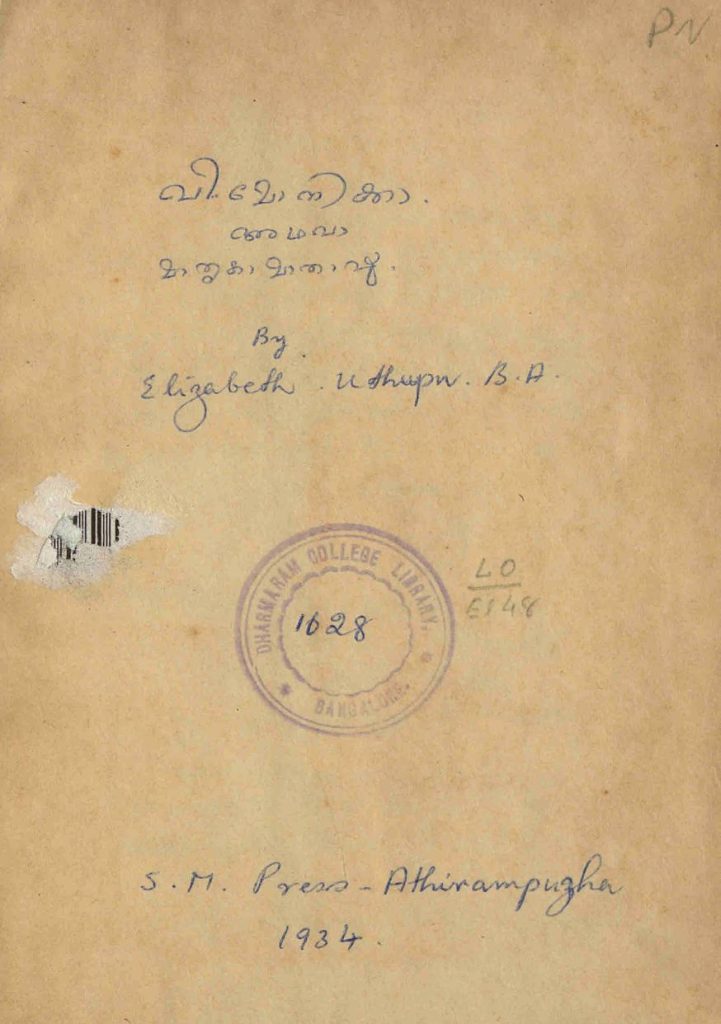 PN
വി. മോനിക്കാ.
അഥവാ
മാതൃകാമാതാവ്.
By
Elizabeth. Uthupu. B.A.
DHARMARAM COLLEGE LIBRARY,
1628
BANGALORE.
LO
E1 48
S. M. Press - Athirampuzha
1934.